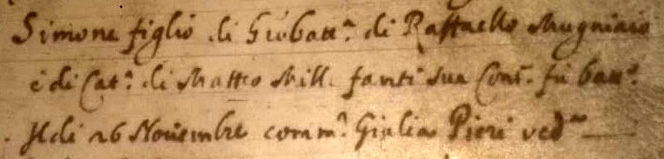 Simone figlio di Giōbatt.ª di Raffaello Mugniaio
e di Cat.ª di Matteo Mill. fanti sua Cons. fù batt.º
Il di 26 Novembre comm.ª Giulia Pieri ved.ª